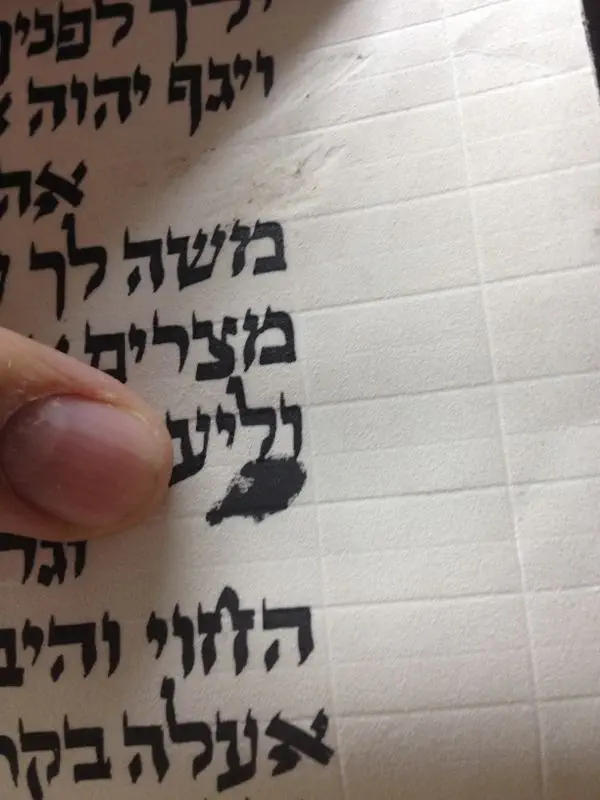 ילך לפניך
ויגף יהוה
אה
משה לך
מצרים
וליע
וגר
החוי והיב
אעלה בקר